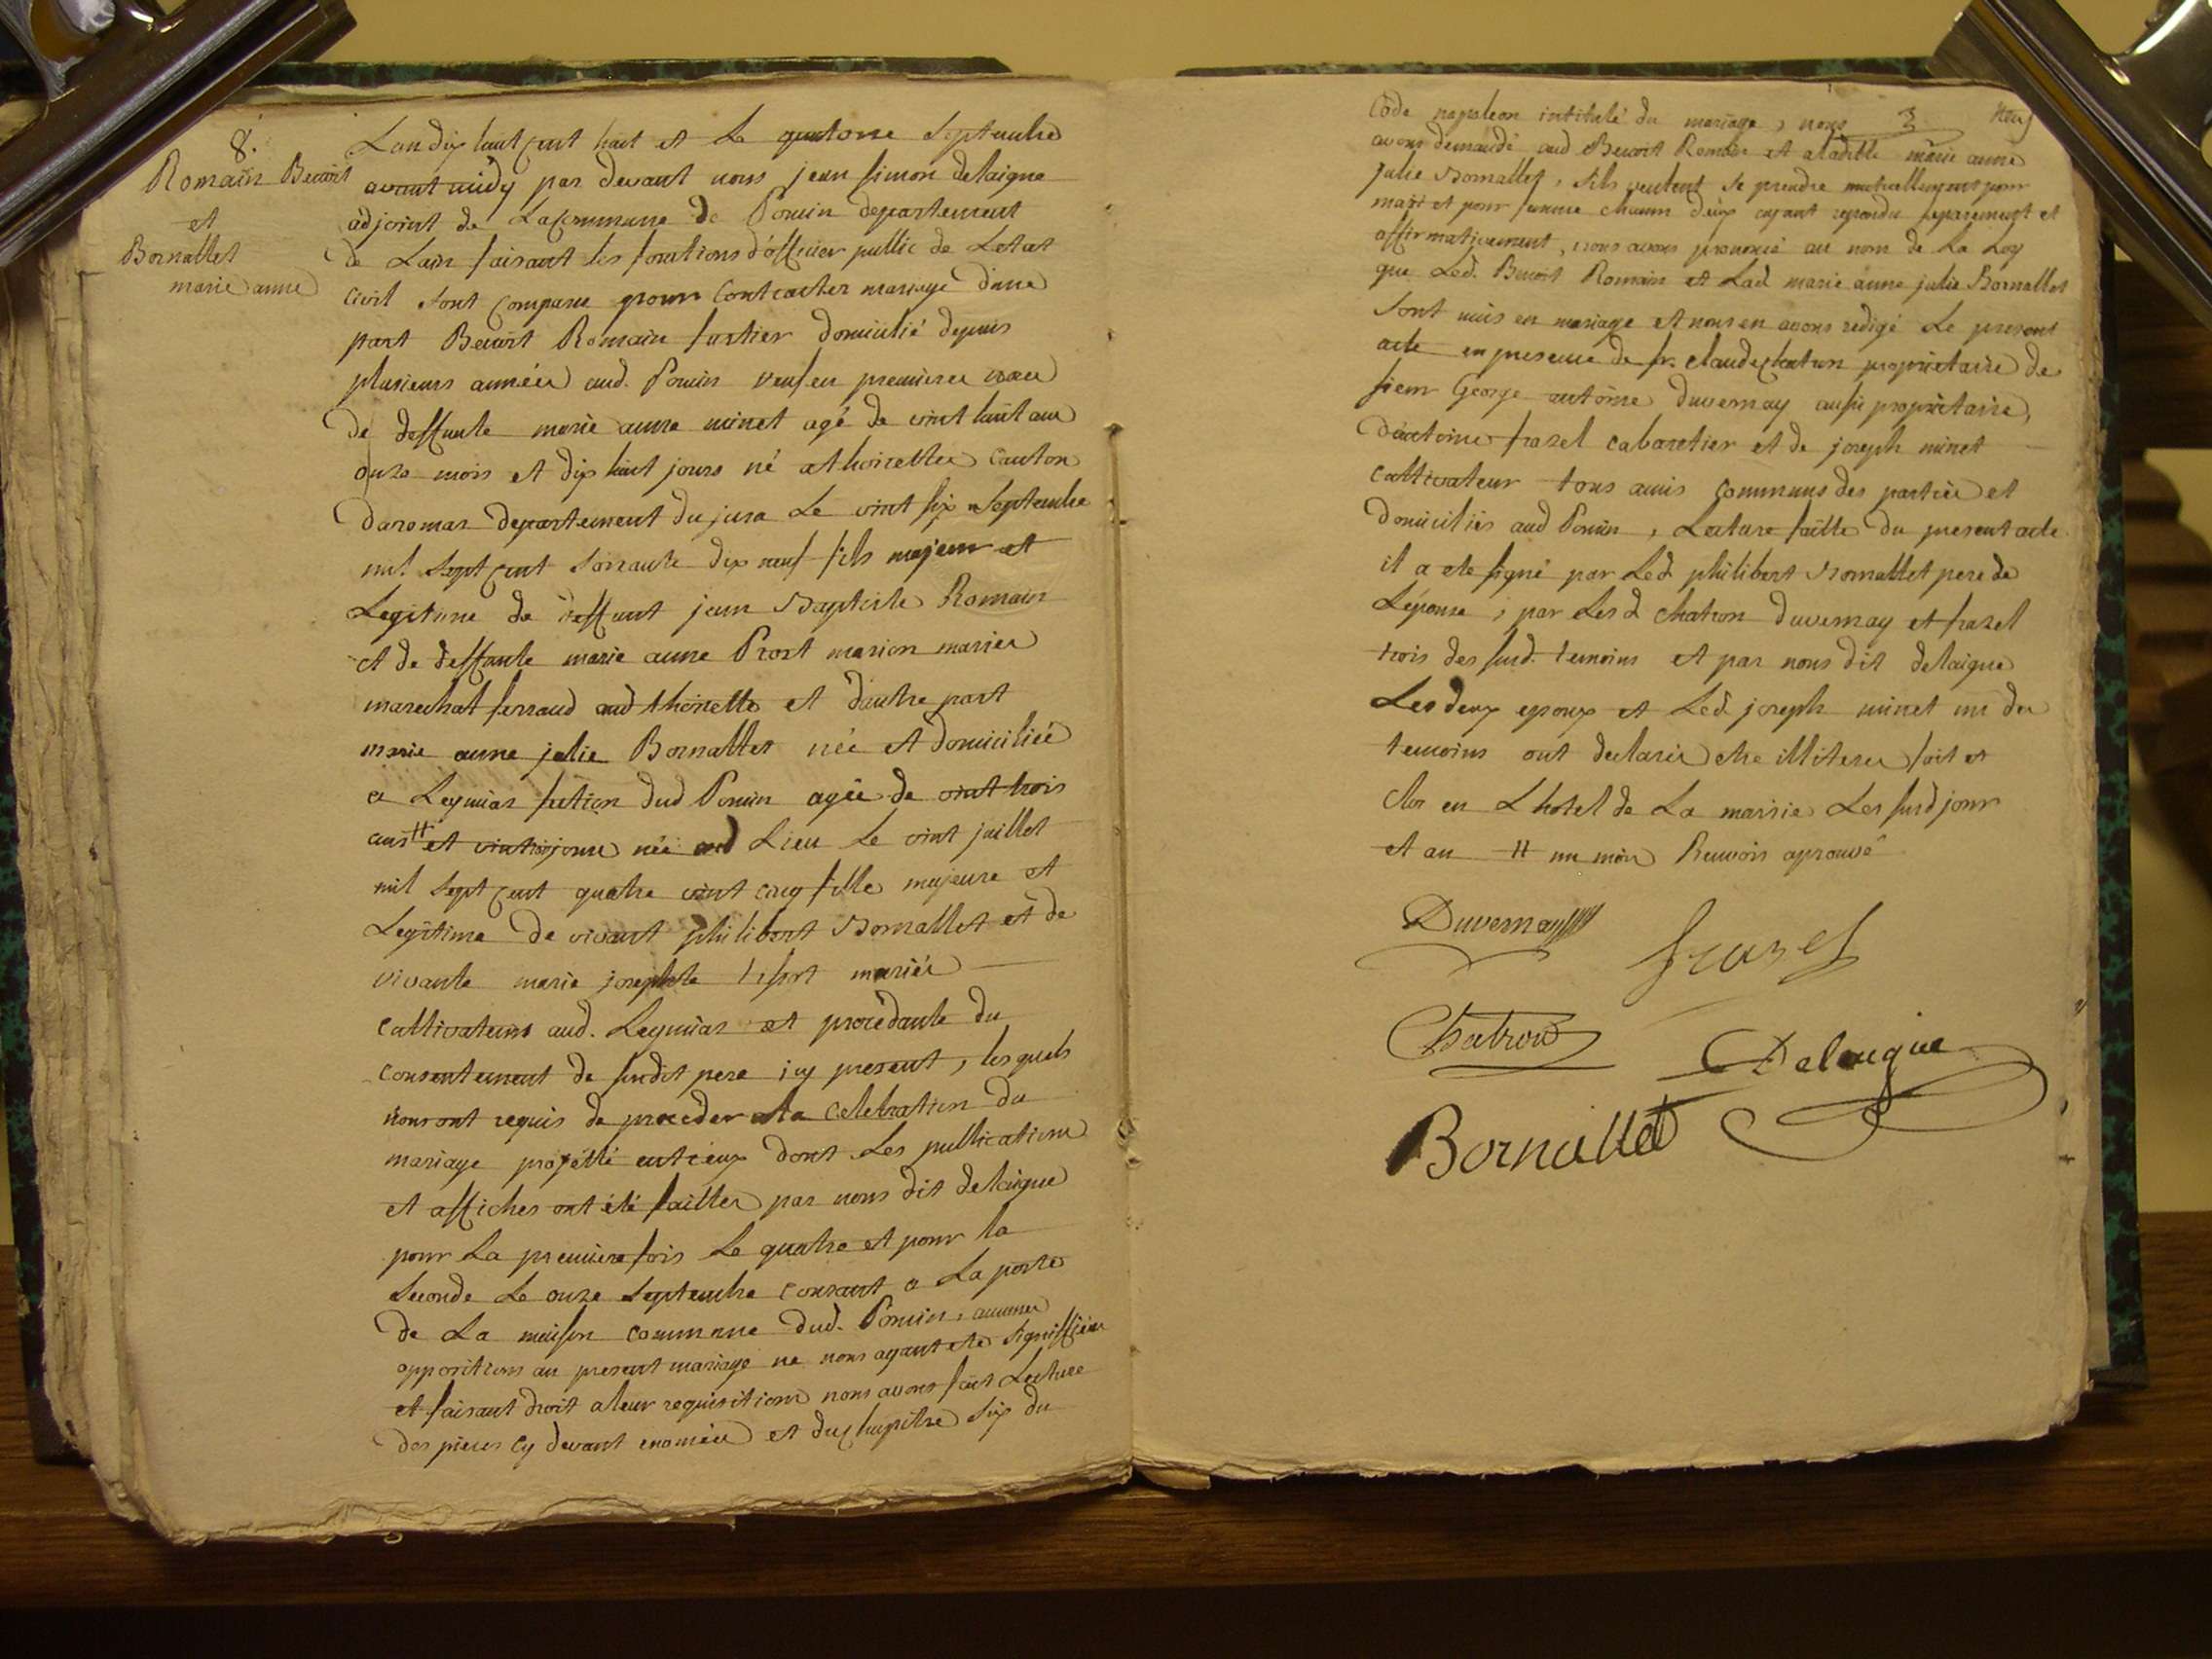 8.
Romain Benoit
et
Bornallet
marie anne
Lan dix huit cent huit et le quatorze septembre
avant midy par devant nous jean simon delaigue
adjoint de La Commune de Poncin departement
de Lain faisant les fonctions d'officier public de Letat
Civil sont comparu pour Contracter mariage dune
part Benoit Romain domicilié depuis
plusieurs années aud. Poncin veuf en premieres
de deffunte marie anne minet agé de vint huit ans
onze mois et dix huit jours né a thoirette canton
daromas departement du jura Le vint six septembre
mil sept cent soixante dix neuf fils majeur et
Legitime de deffunt jean Baptiste Romain
et de deffunte marie anne Prost mariés
marechal ferrand aud thoirette et d'autre part
marie anne julie Bornallet née et domiciliée
a Leymiat section dud Poncin agée de vint trois
ans # et née aud Lieu Le vint juillet
mil sept cent quatre vint cinq fille majeure et
Legitime de vivant philibert Bornallet et de
vivante marie josephte mariés
Cultivateurs aud. Leymiat et procedante du
consentement de sudit pere icy present, les quels
nous ont requis de proceder a la Celebration du
mariage projetté entreux dont Les publications
et affiches ont été faittes par nous dit delaigue
pour La premiere fois Le quatre et pour la
seconde Le onze septembre courant a La porte
de La maison commune dud. Poncin, aucunes
oppositions au present mariage ne nous ayant ete signiffiées
et faisant droit a leur requisitions nous avons fait Lecture
des pieces cy devant et du chapitre six du
3 neuf
Code napoleon intitulé du mariage, nous
avons demandé aud Benoit Romain et aladitte marie anne
Julie Bornallet, sils veulent se prendre mutuellement pour
mari et pour femme chacun deux ayant repondu separement et
affirmativement, nous avons prononcé au nom de La Loy
que Led. Benoit Romain et Lad marie anne julie Bornallet
sont unis en mariage et nous en avons redigé Le present
acte en presence de sr. claude chatron propriétaire de
sieur George antoine Duvernay aussi propriétaire,
d'antoine frazel cabaretier et de joseph minet
cultivateur tous amis communs des parties et
domiciliés aud Poncin, Lecture faitte du present acte
il a ete signé par Led philibert Bornallet pere de
Lépouse, par Lesd Chatron Duvernay et frazel
trois des susd. temoins et par nous dit delaigue
Les deux epoux et Led joseph minet un des
temoins ont declarés etre illiteres fait et
clos en Lhotel de La mairie Les susd jour
et an # un mois Renvois aprouvé
Duvernay
frazel
Chatron
Delaigue
Bornallet